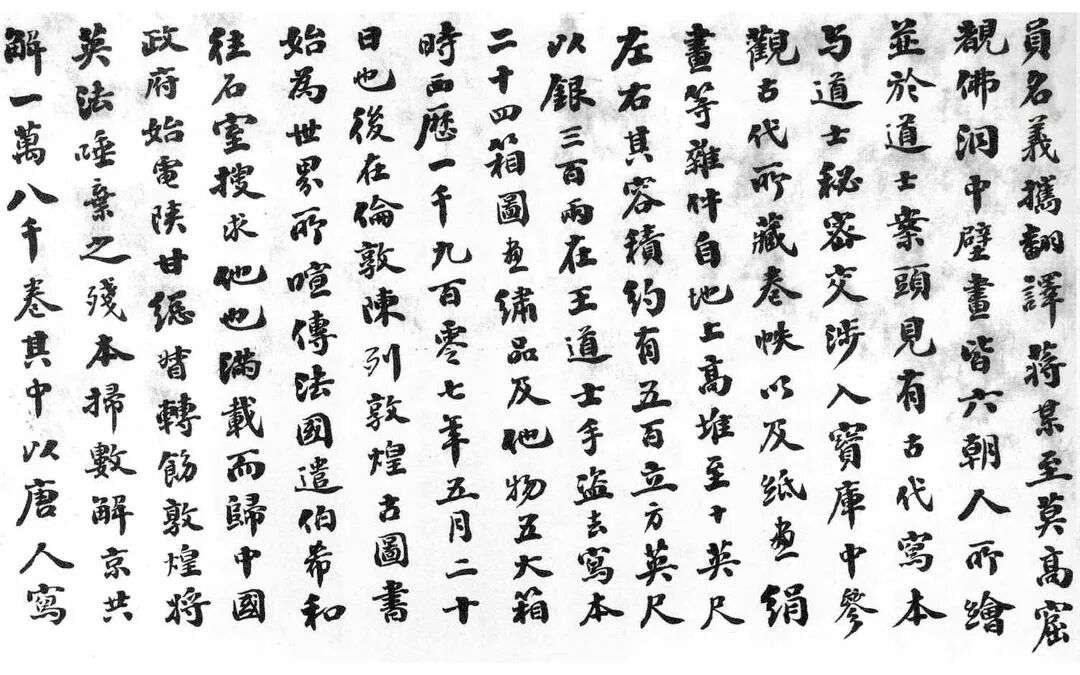 員名義攜翻譯蔣某至莫高窟
覩佛洞中壁畫皆六朝人所繪
並於道士案頭見有古代寫本
与道士秘密交涉入寶庫中參
觀古代所藏卷帙以及紙畫絹
畫等雜件自地上高堆至十英尺
左右其容積約有五百立方英尺
以銀三百兩在王道士手盜去寫本
二十四箱圖畫繡品及他物五大箱
時西歷一千九百零七年五月二十
日也後在倫敦陳列敦煌古圖書
始為世界所喧傳法國遣伯希和
往石室搜求他也滿載而歸中國
政府始電陝甘總督轉飭敦煌將
英法唾棄之殘本掃數解京共
解一萬八千卷其中以唐人寫